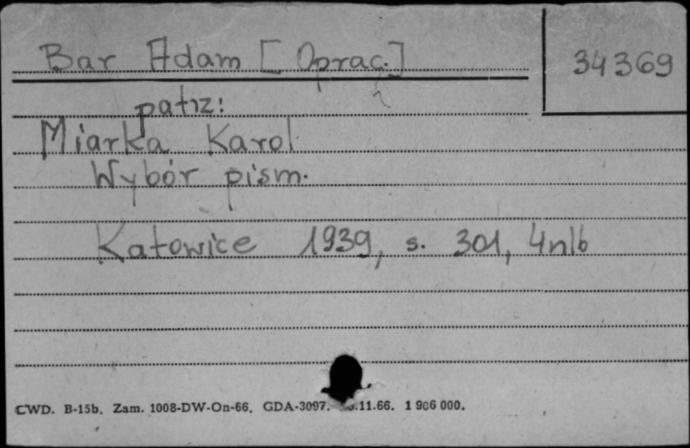 Bar Adam [Oprac.]
34369
patrz:
Miarka Karol
Wybór pism.
Katowice 1939, s. 301, 4nlb
CWD. B-15b. Zam. 1008-DW-On-66. GDA-3097. .11.66. 1 906 000.